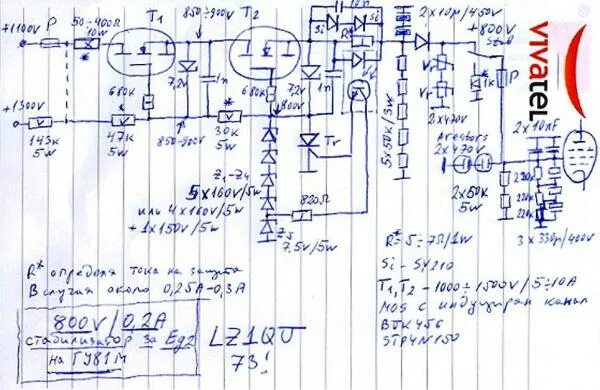 +1100V P 50÷400Ω
10W
T1
850÷900V
T2
10n
Si
Si
R*
2x10µ/450V
+800V
P
7,2V
1n
680k
680k
7,2V
800V
1n
Vr
Vr
1k
+1300V
143k
5W
47k
5W
850-900V
30k
5W
Tr
5x50k/3W
2x470V
Arestors
2x470V
2x10nF
Z1-Z4
5x160V/5W
или 4x160V/5W
+1x150V/5W
820Ω
Z5
7.5V/5W
2x50k
5W
220k
220k
220k
3x330µ/400V
R* определя тока на защита
В случая около 0,25A-0,3A
R*=5÷7Ω/1W
Si - SY210
T1,T2 - 1000÷1500V/5÷10A
MOS с индуциран канал
BUK456
STP4N150
800V/0,2A
стабилизатор за Eg2
на ГУ81М
LZ1QU
73!
VIVATEL